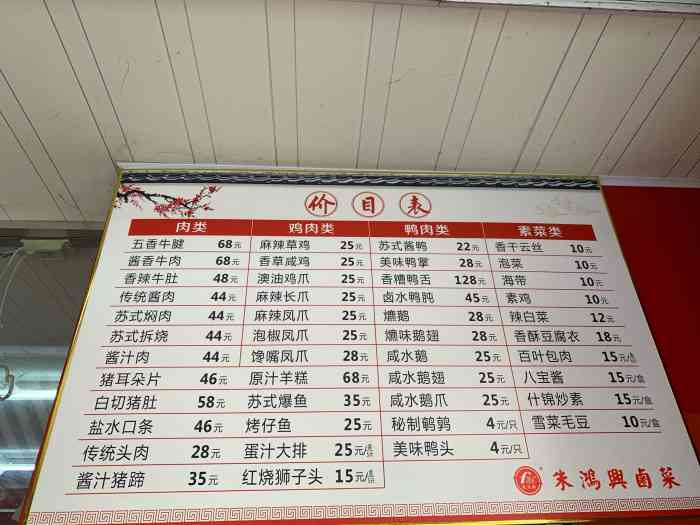 价目表
肉类 鸡肉类 鸭肉类 素菜类
五香牛腱 68元 麻辣草鸡 25元 苏式酱鸭 22元 香干云丝 10元
酱香牛肉 68元 香草咸鸡 25元 美味鸭掌 28元 泡菜 10元
香辣牛肚 48元 澳油鸡爪 25元 香糟鸭舌 128元 海带 10元
传统酱肉 44元 麻辣长爪 25元 卤水鸭肫 45元 素鸡 10元
苏式焖肉 44元 麻辣凤爪 25元 爊鹅 28元 辣白菜 12元
苏式拆烧 44元 泡椒凤爪 25元 爊味鹅翅 28元 香酥豆腐衣 18元
酱汁肉 44元 馋嘴凤爪 28元 咸水鹅 25元 百叶包肉 15元/盒
猪耳朵片 46元 原汁羊糕 68元 咸水鹅翅 25元 八宝酱 15元/盒
白切猪肚 58元 苏式爆鱼 35元 咸水鹅爪 25元 什锦炒素 15元/盒
盐水口条 46元 烤仔鱼 25元 秘制鹌鹑 4元/只 雪菜毛豆 10元/盒
传统头肉 28元 蛋汁大排 25元 美味鸭头 4元/只
酱汁猪蹄 35元 红烧狮子头 15元
朱鴻興卤菜